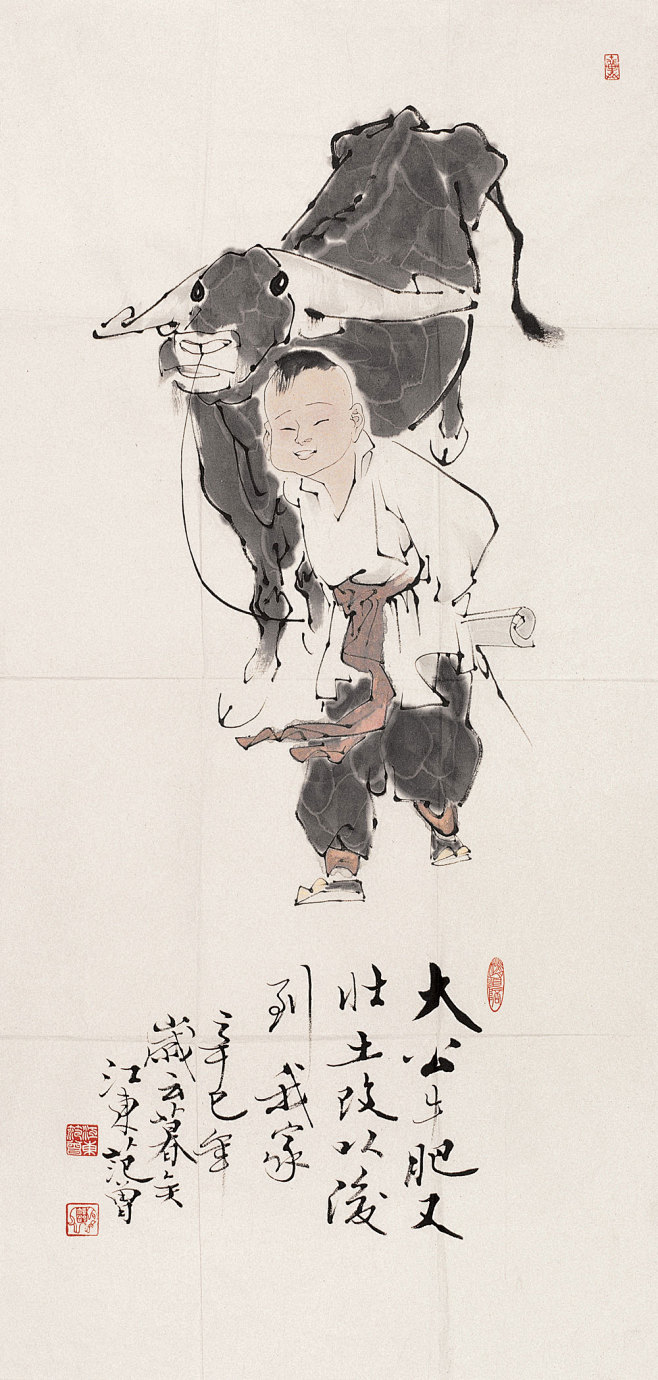 大公牛肥又
壮土改以後
到我家
辛巳年
歲云暮矣
江東范曾